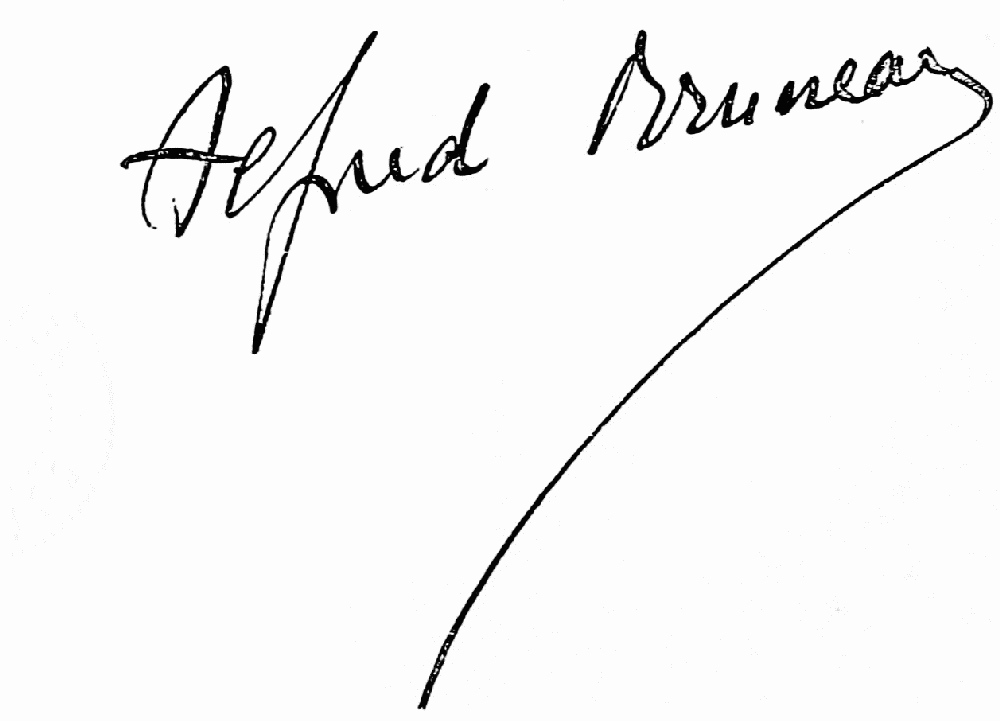 Alfred Bruneau